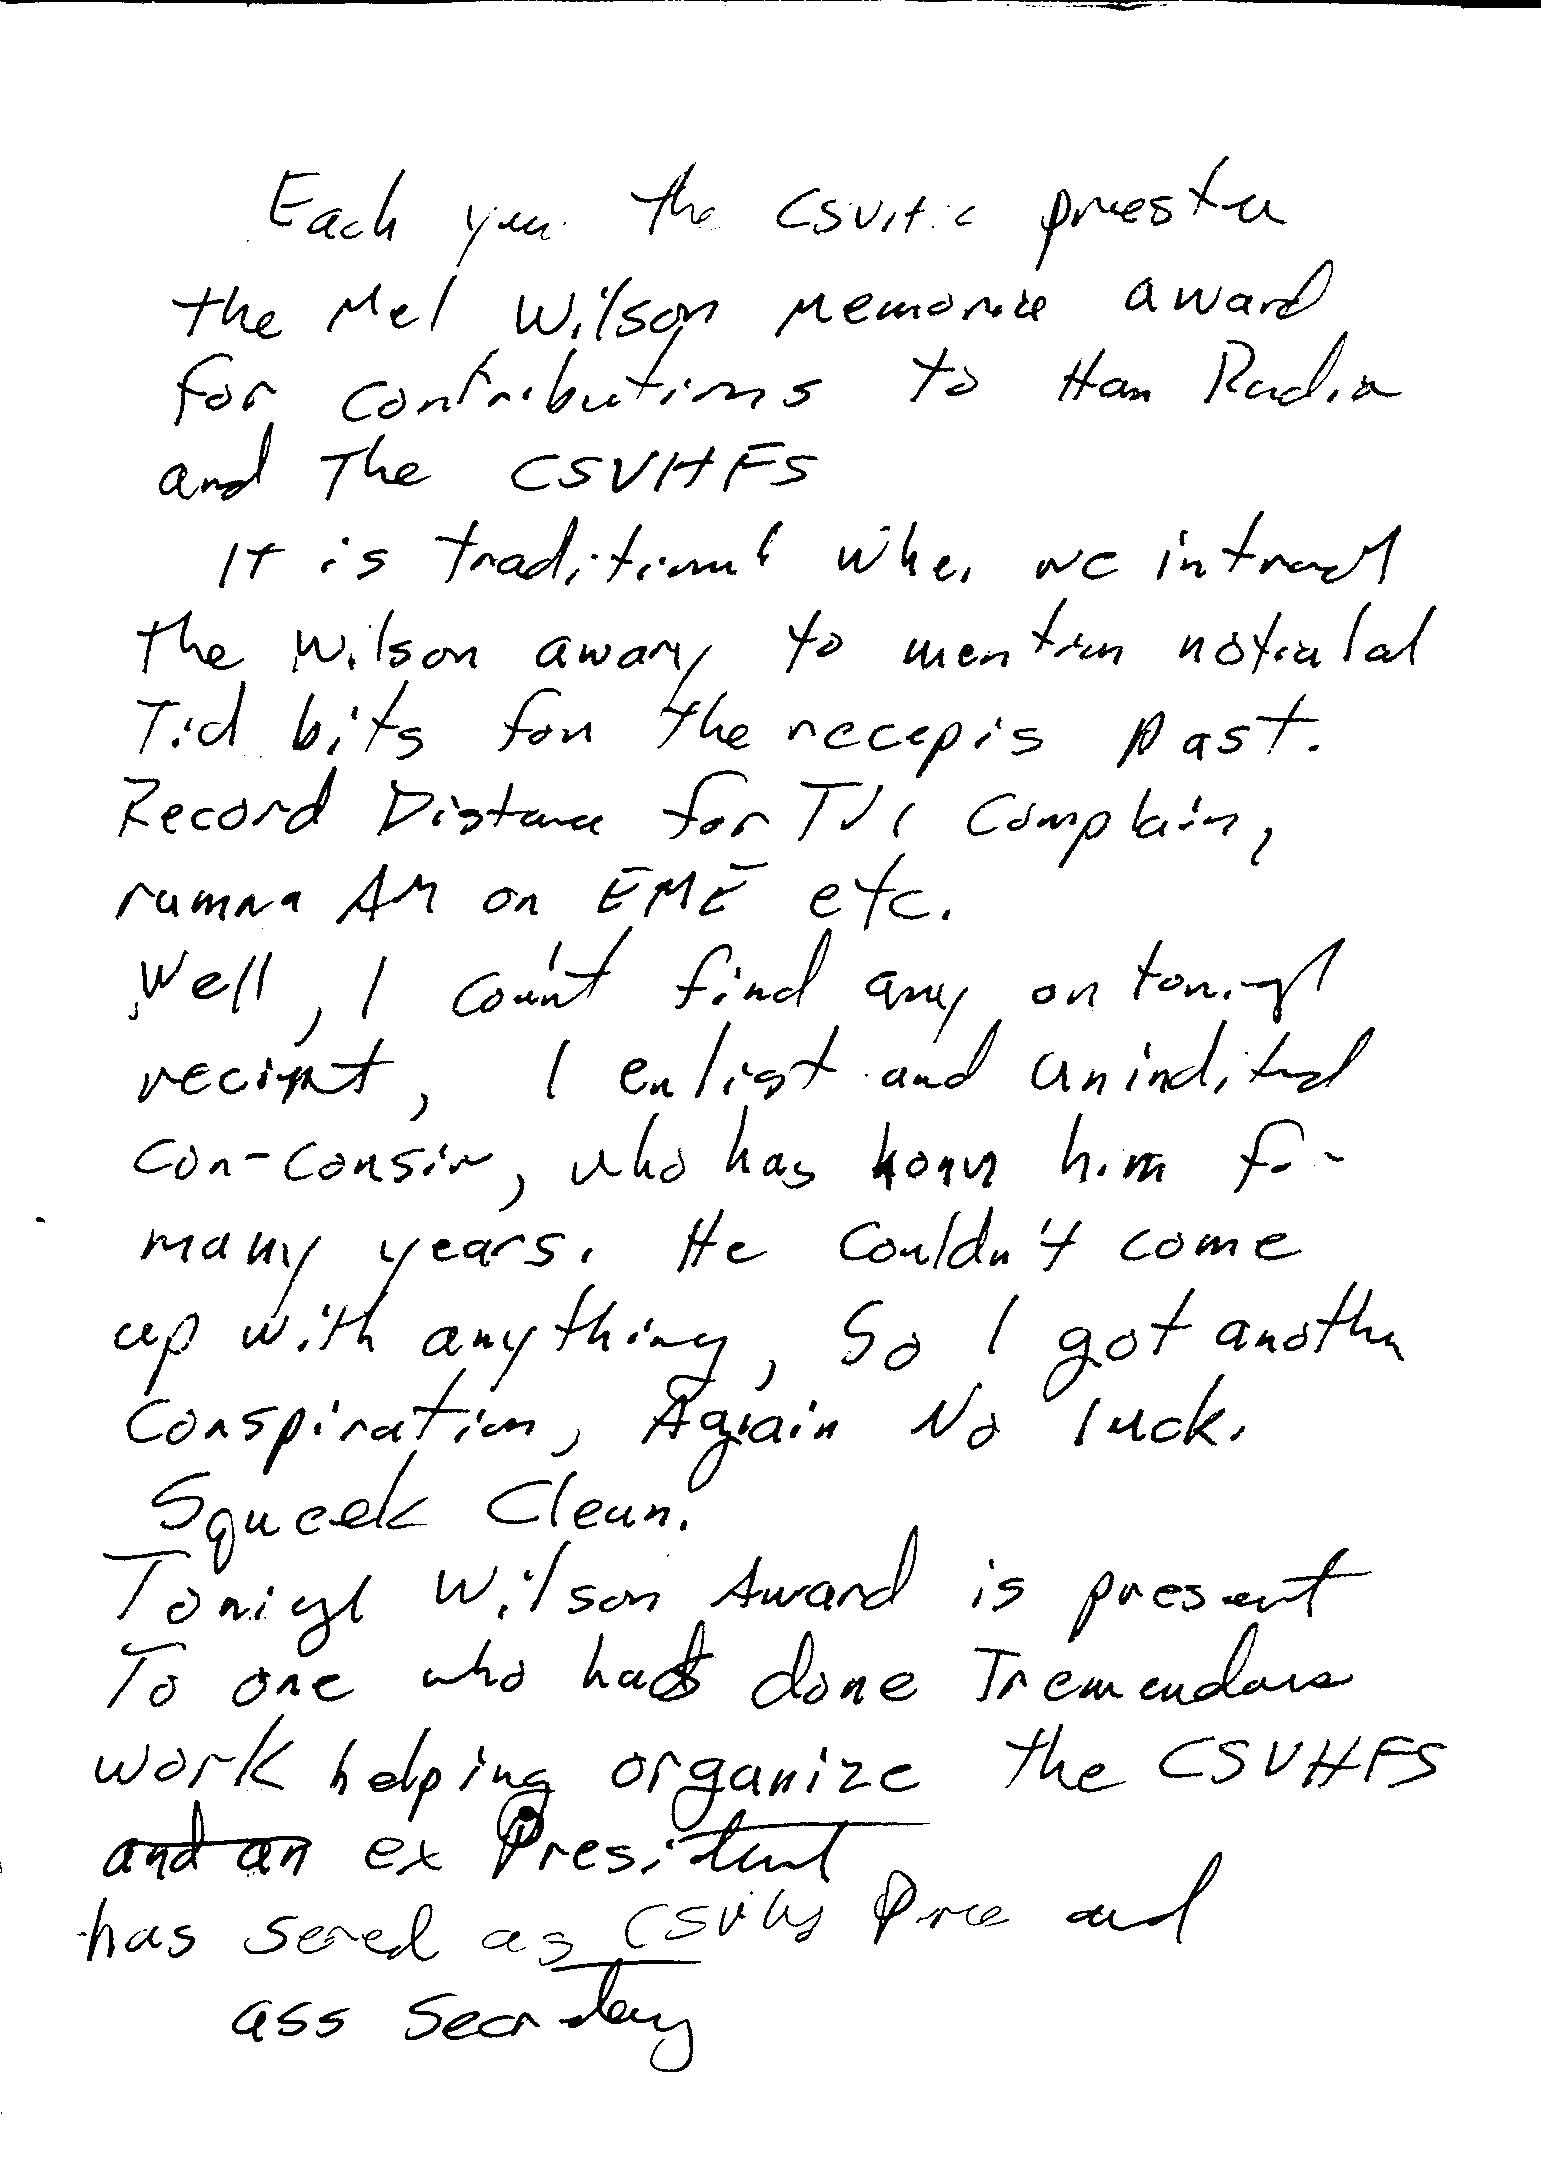 Each year the CSVHF presten
the Mel Wilson Memorial award
for contributions to Ham Radio
and The CSVHFS
It is traditional when we introd
the Wilson award to mention
Tid bits from the recepis past.
Record Distance for TVI Complain,
running AM on EME etc.
Well, I coun't find any on tonight
recipnt, I enlist and unindited
con-consir, who has known him for
many years. He couldn't come
up with anything, So I got another
Conspiration, Again No luck.
Squeek Clean.
Tonight Wilson Award is present
To one who has done Tremendous
work helping organize the CSVHFS
and an ex President
has sered as CSVHFS Pree and
ass Secretary